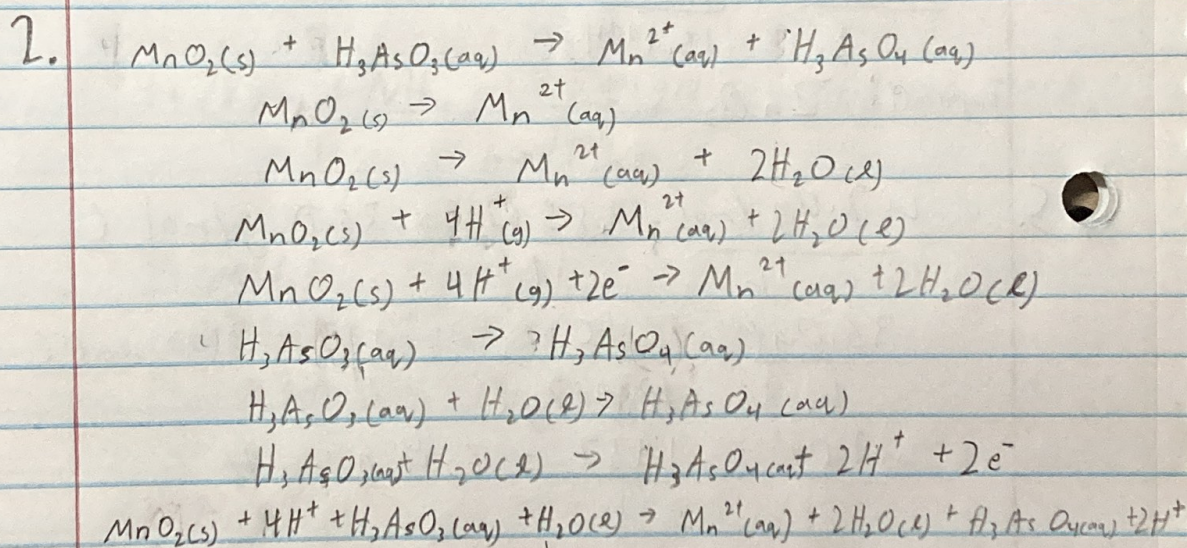 2. MnO₂(s) + H₃AsO₃(aq) → Mn²⁺(aq) + H₃AsO₄(aq)
MnO₂(s) → Mn²⁺(aq)
MnO₂(s) → Mn²⁺(aq) + 2H₂O(l)
MnO₂(s) + 4H⁺(g) → Mn²⁺(aq) + 2H₂O(l)
MnO₂(s) + 4H⁺(g) + 2e⁻ → Mn²⁺(aq) + 2H₂O(l)
H₃AsO₃(aq) → H₃AsO₄(aq)
H₃AsO₃(aq) + H₂O(l) → H₃AsO₄(aq)
H₃AsO₃(aq) + H₂O(l) → H₃AsO₄(aq) + 2H⁺ + 2e⁻
MnO₂(s) + 4H⁺ + H₃AsO₃(aq) + H₂O(l) → Mn²⁺(aq) + 2H₂O(l) + H₃AsO₄(aq) + 2H⁺